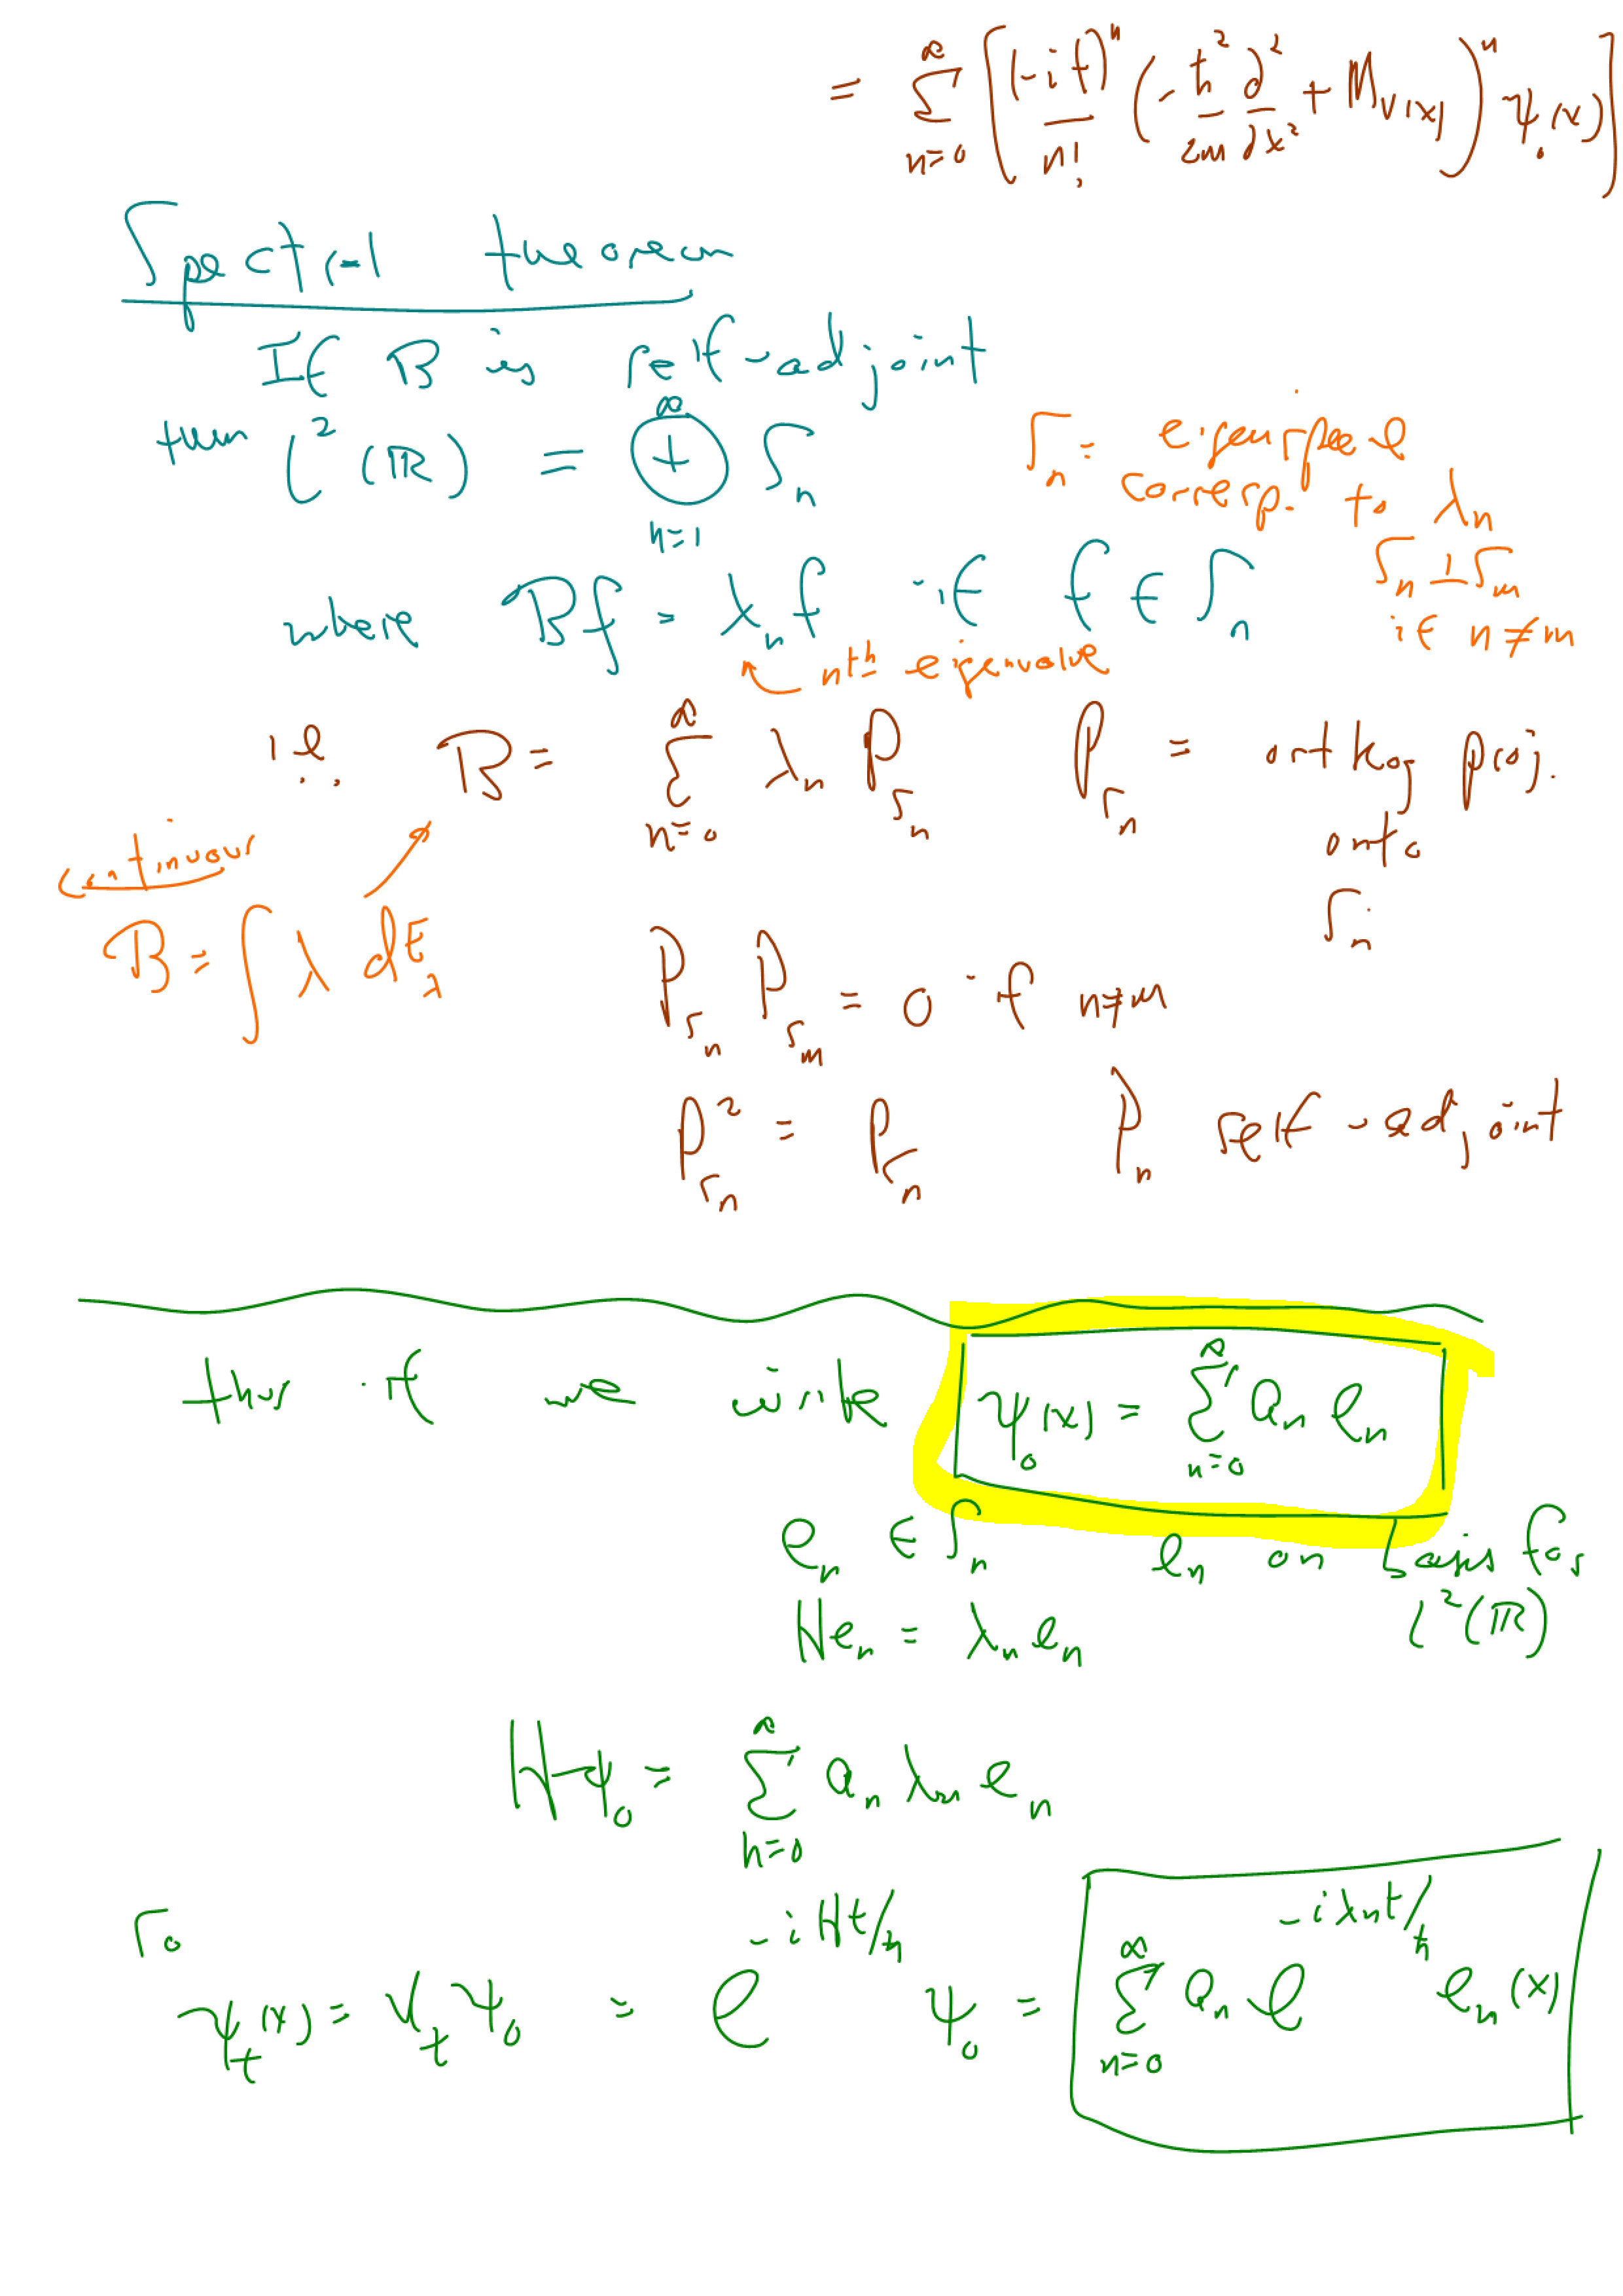 = ∑_{n=0}^{∞} [ (-it)^n / n! ( -ħ²/2m ∂²/∂x² + M_{V(x)} )^n ψ_0(x) ]
Spectral theorem
If B is self-adjoint
then L²(ℝ) = ⊕_{n=1}^{∞} S_n
S_n = eigenspace
corresp. to λ_n
S_n ⊥ S_m
if n ≠ m
where Bf = λ_n f if f ∈ S_n
nth eigenvalue
i.e. B = ∑_{n=0}^{∞} λ_n P_{S_n} P_{S_n} = orthog proj.
onto
S_n
continuous
B = ∫ λ dE_λ
P_{S_n} P_{S_m} = 0 if n≠m
P²_{S_n} = P_{S_n} P_n self-adjoint
thus if we write ψ_0(x) = ∑_{n=0}^{∞} a_n e_n
e_n ∈ S_n e_n on basis for
L²(ℝ)
He_n = λ_n e_n
Hψ_0 = ∑_{n=0}^{∞} a_n λ_n e_n
So
ψ_t(x) = U_t ψ_0 = e^{-iHt/ħ} ψ_0 = ∑_{n=0}^{∞} a_n e^{-iλ_n t/ħ} e_n(x)